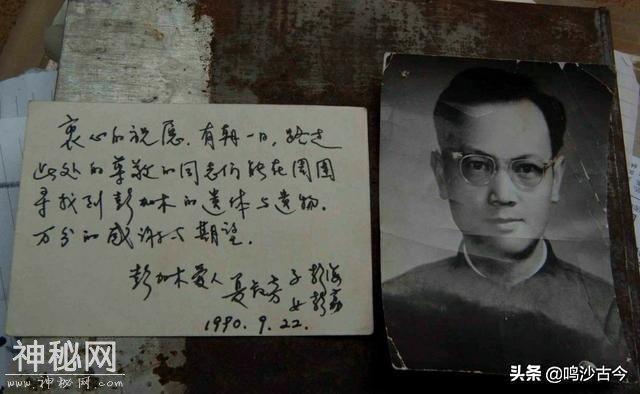 衷心的祝愿，有朝一日，路过
此处的尊敬的同志们能在周围
寻找到彭加木的遗体与遗物。
万分的感谢与期望。
彭加木爱人 夏叔芳 子 彭海
女 彭荔
1990.9.22.
神秘网
www.神秘网.com
头条@鸣沙古今